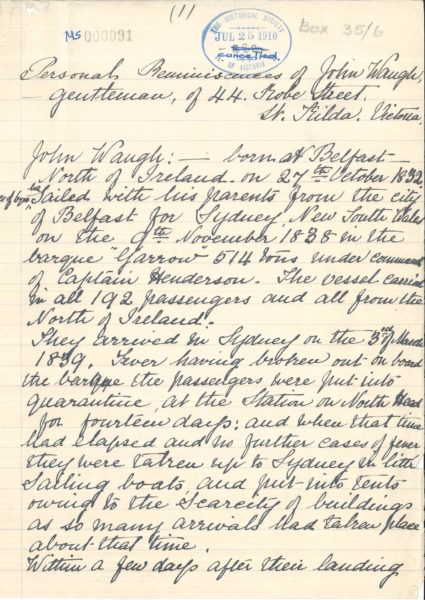 (1)
MS 000091
THE HISTORICAL SOCIETY
JUL 25 1910
cancelled.
OF VICTORIA
Box 35/6
Personal Reminiscences of John Waugh,
gentleman, of 44. Robe Street.
St. Kilda, Victoria.
John Waugh: — born at Belfast
North of Ireland on 27th October 1832.
Sailed with his parents from the city
of Belfast for Sydney New South Wales
on the 9th November 1838 in the
barque "Garrow" 514 tons under command
of Captain Henderson. The vessel carried
in all 192 passengers and all from the
North of Ireland.
They arrived in Sydney on the 3rd March
1839. Fever having broken out on board
the barque the passengers were put into
quarantine, at the Station on North Head
for fourteen days; and when that time
had elapsed and no further cases of fever
they were taken up to Sydney in little
sailing boats and put into tents
owing to the scarcity of buildings
as so many arrivals had taken place
about that time.
Within a few days after their landing